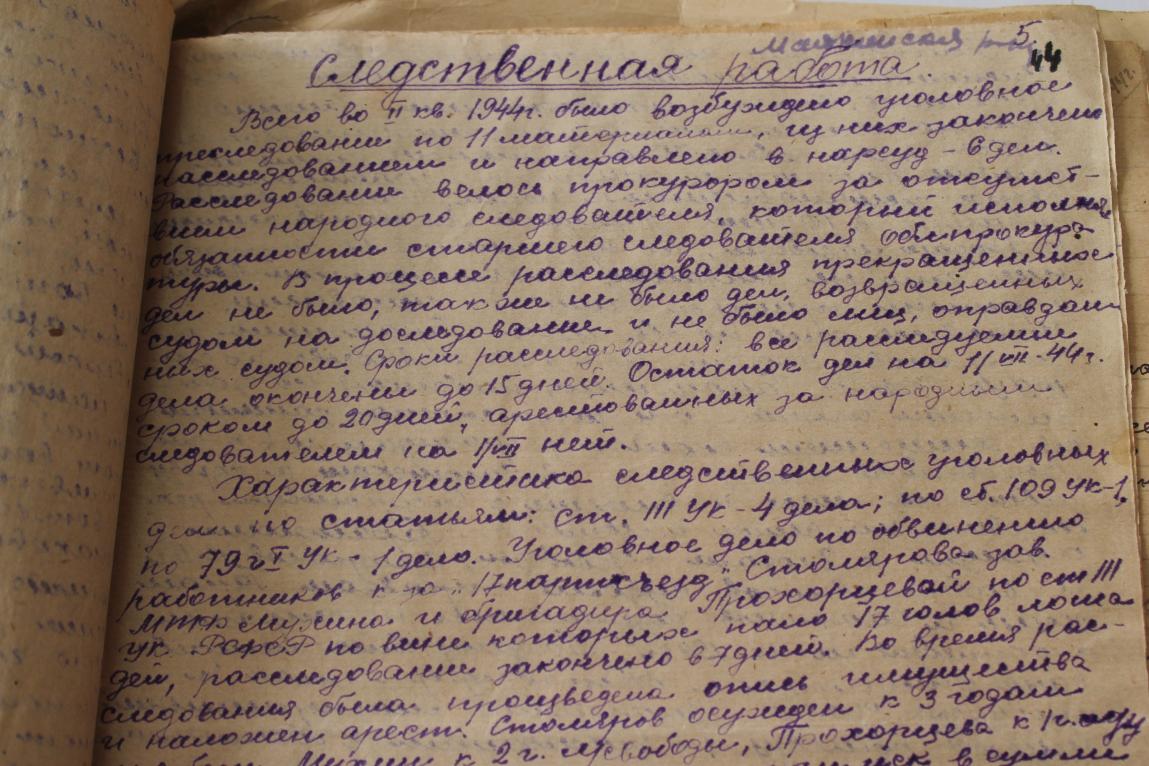 5.
44
Следственная работа.
Всего во II кв. 1944г. было возбуждено уголовное
преследование по 11 материалам, из них закончено
расследованием и направлено в нарсуд – 6 дел.
Расследование велось прокурором за отсутст-
вием народного следователя, который исполнял
обязанности старшего следователя облпрокура-
туры. В процессе расследования прекращенных
дел не было, также не было дел, возвращенных
судом на доследование и не было лиц, оправдан-
ных судом. Сроки расследования: все расследуемые
дела окончены до 15 дней. Остаток дел на 1/VII-44г.
сроком до 20 дней, арестованных за народным
следователем на 1/VII нет.
Характеристика следственных уголовных
дел по статьям: ст. 111 УК – 4 дела; по ст. 109 УК-1,
по 79 УК – 1 дело. Уголовное дело по обвинению
работников к-за "17 партсъезд" Столярова зав.
МТФ Мухина и бригадира Прохорцевой по ст 111
УК РСФСР по вине которых пало 17 голов лоша
дей, расследование закончено в 7 дней. Во время рас-
следования была произведена опись имущества
и наложен арест. Столяров осужден к 3 годам
Мухин к 2 г. л/свободы, Прохорцева к 1 г.
в сумме